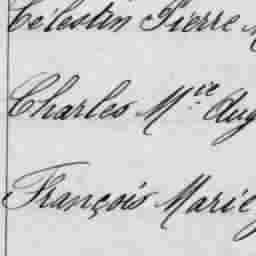 Célestin Pierre M
Charles Mce Aug
François Marie